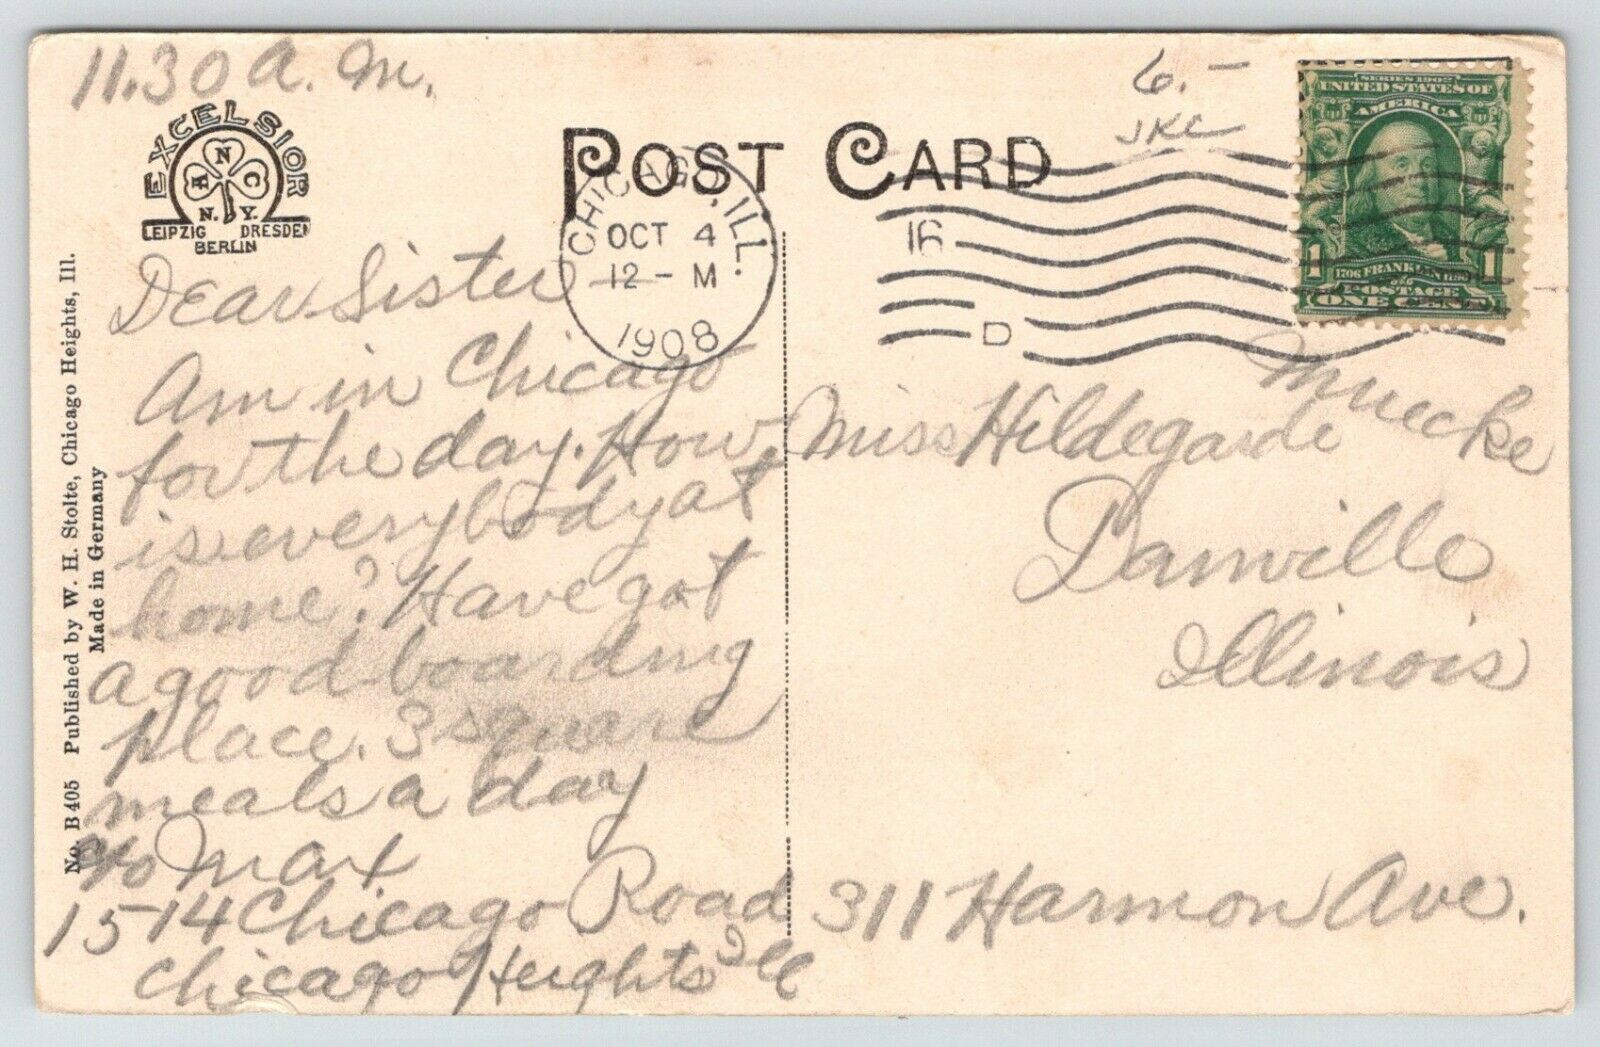 11.30 a. m.
6.-
JKC
EXCELSIOR
A N C
N. Y.
LEIPZIG DRESDEN
BERLIN
POST CARD
CHICAGO, ILL.
OCT 4
12-M
1908
16
D
SERIES 1902
UNITED STATES OF
AMERICA
1 1
1706 FRANKLIN 1790
POSTAGE
ONE CENT
No. B 405 Published by W. H. Stolte, Chicago Heights, Ill.
Made in Germany
Dear Sister
Am in Chicago
for the day. How
is everybody at
home? Have got
a good boarding
place. 3 square
meals a day
c/o Max
1514 Chicago Road
Chicago Heights Ill
Muecke
Miss Hildegarde
Danville
Illinois
311 Harmon Ave.